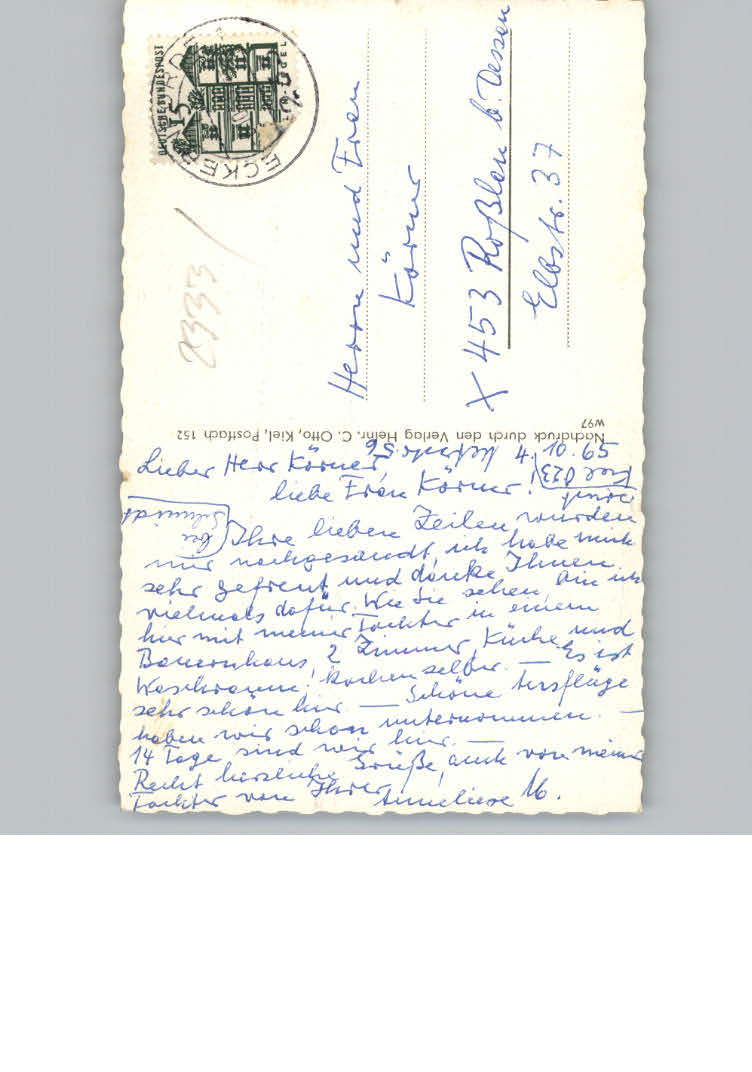 DEUTSCHE BUNDESPOST
15
TEGEL
ECKER
2333
Herrn und Frau
Körner
X 453 Roßlau b. Dessau
Elbstr. 37
Nachdruck durch den Verlag Heinr. C. Otto, Kiel, Postfach 152
W97
Lieber Herr Körner,
liebe Frau Körner!
Ihre lieben Zeilen wurden
mir nachgesandt, ich habe mich
sehr gefreut und danke Ihnen
vielmals dafür. Wie Sie sehen, bin ich
hier mit meiner Tochter in einem
Bauernhaus, 2 Zimmer, Küche und
Waschraum! kochen selber. — Es ist
sehr schön hier — Schöne Ausflüge
haben wir schon unternommen. —
14 Tage sind wir hier. —
Recht herzliche Grüße, auch von meiner
Tochter von Ihrer Anneliese M.
bei
Schmidt